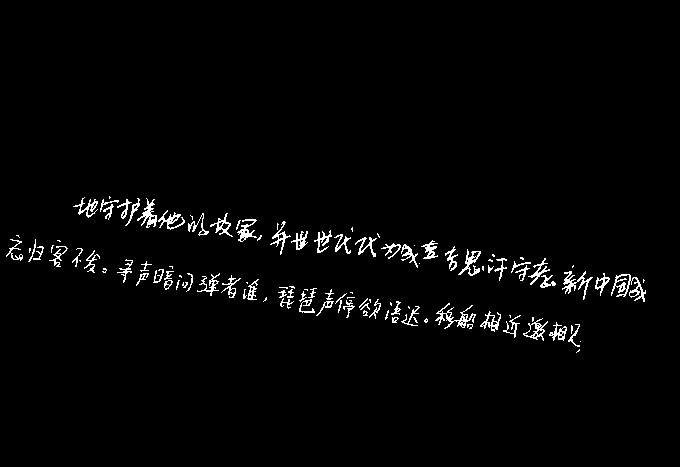 地守护着他的故冢,并世世代代为成吉思汗守陵。新中国成
忘归客不发。寻声暗问弹者谁,琵琶声停欲语迟。移船相近邀相见,